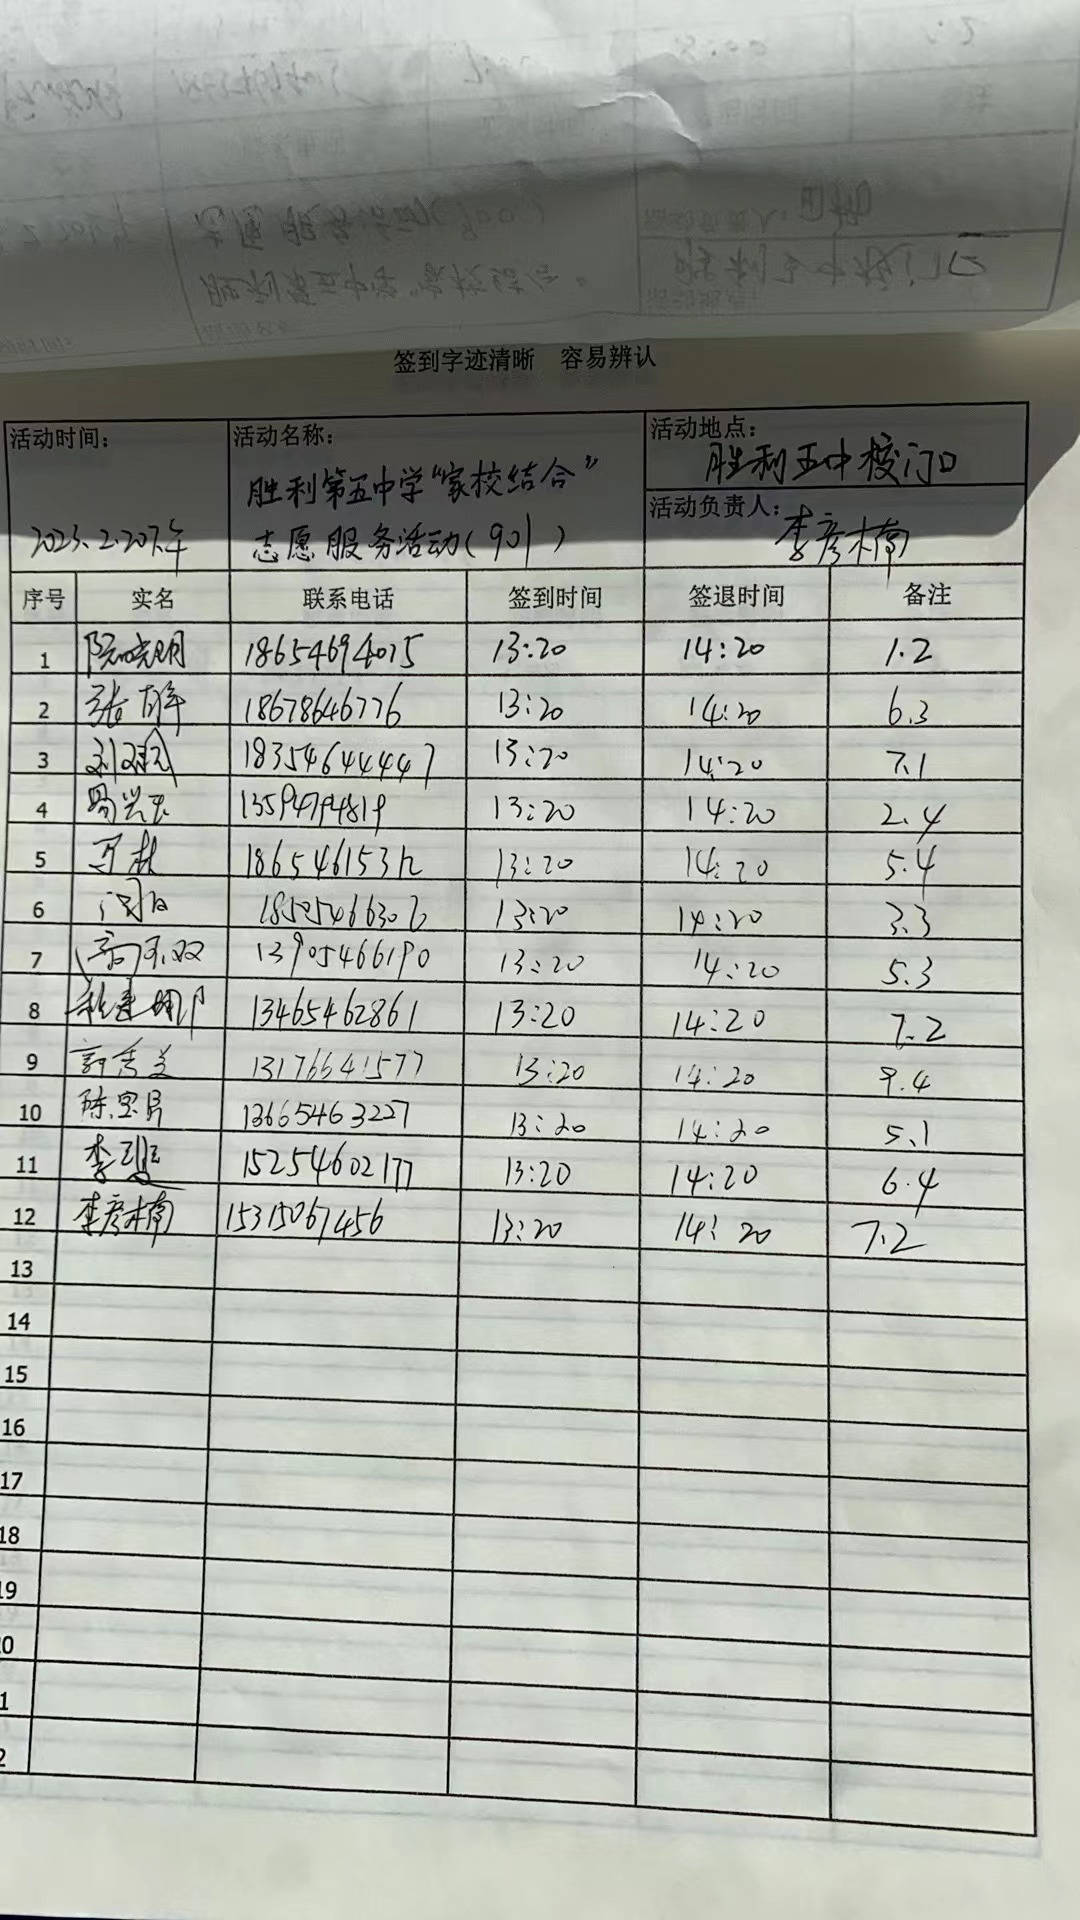 签到字迹清晰 容易辨认
活动时间：
2023.2.20下午
活动名称：
胜利第五中学“家校结合”
志愿服务活动(901)
活动地点：
胜利五中校门口
活动负责人：
李彦楠
序号 实名 联系电话 签到时间 签退时间 备注
1 18654694075 13:20 14:20 1.2
2 张 18678646776 13:20 14:20 6.3
3 刘 18354644447 13:20 14:20 7.1
4 13594794819 13:20 14:20 2.4
5 18654615312 13:20 14:20 5.4
6 13:20 14:20 3.3
7 高 双 13905466190 13:20 14:20 5.3
8 13465462861 13:20 14:20 7.2
9 郭秀美 13176641577 13:20 14:20 9.4
10 陈 13665463227 13:20 14:20 5.1
11 李 15254602177 13:20 14:20 6.4
12 李彦楠 15315067456 13:20 14:20 7.2
13
14
15
16
17
18
19
20